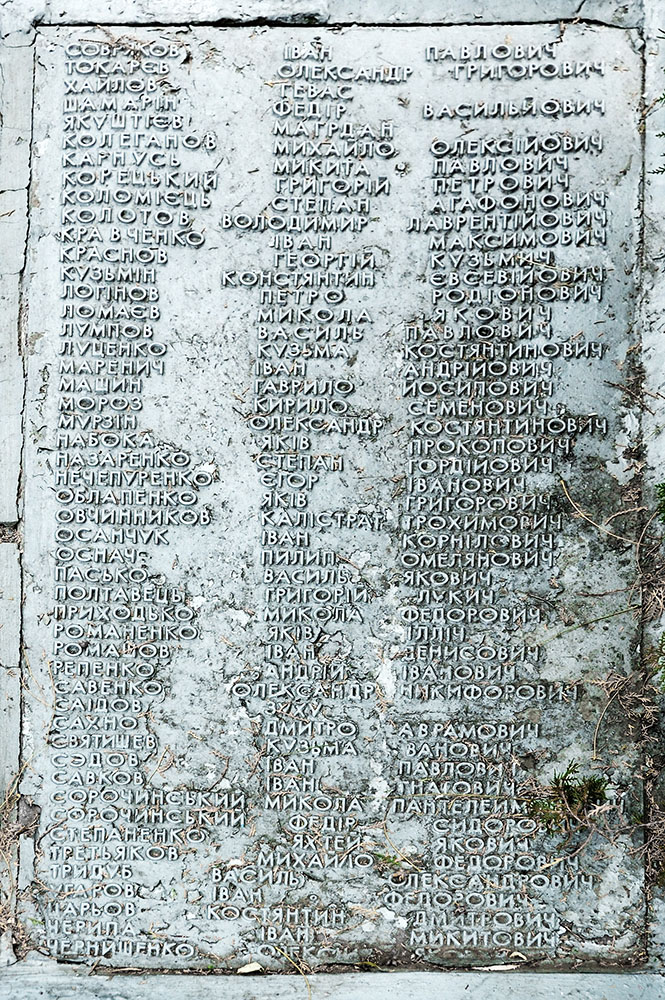 СОВРКОВ ІВАН ПАВЛОВИЧ
ТОКАРЄВ ОЛЕКСАНДР ГРИГОРОВИЧ
ХАЙЛОВ ТЕВАС
ШАМАРІН ФЕДІР ВАСИЛЬЙОВИЧ
ЯКУШТІЄВ МАГРДАН
КОЛЕГАНОВ МИХАЙЛО ОЛЕКСІЙОВИЧ
КАРНУСЬ МИКИТА ПАВЛОВИЧ
КОРЕЦЬКИЙ ГРИГОРІЙ ПЕТРОВИЧ
КОЛОМІЄЦЬ СТЕПАН АГАФОНОВИЧ
КОЛОТОВ ВОЛОДИМИР ЛАВРЕНТІЙОВИЧ
КРАВЧЕНКО ІВАН МАКСИМОВИЧ
КРАСНОВ ГЕОРГІЙ КУЗЬМИЧ
КУЗЬМІН КОНСТЯНТИН ЄВСЕВІЙОВИЧ
ЛОГІНОВ ПЕТРО РОДІОНОВИЧ
ЛОМАЄВ МИКОЛА ЯКОВИЧ
ЛУМПОВ ВАСИЛЬ ПАВЛОВИЧ
ЛУЦЕНКО КУЗЬМА КОСТЯНТИНОВИЧ
МАРЕНИЧ ІВАН АНДРІЙОВИЧ
МАЩИН ГАВРИЛО ЙОСИПОВИЧ
МОРОЗ КИРИЛО СЕМЕНОВИЧ
МУРЗІН ОЛЕКСАНДР КОСТЯНТИНОВИЧ
НАБОКА ЯКІВ ПРОКОПОВИЧ
НАЗАРЕНКО СТЕПАН ГОРДІЙОВИЧ
НЕЧЕПУРЕНКО ЄГОР ІВАНОВИЧ
ОБЛАПЕНКО ЯКІВ ГРИГОРОВИЧ
ОВЧИННИКОВ КАЛІСТРАТ ТРОХИМОВИЧ
ОСАНЧУК ІВАН КОРНІЛОВИЧ
ОСНАЧ ПИЛИП ОМЕЛЯНОВИЧ
ПАСЬКО ВАСИЛЬ ЯКОВИЧ
ПОЛТАВЕЦЬ ГРИГОРІЙ ЛУКИЧ
ПРИХОДЬКО МИКОЛА ФЕДОРОВИЧ
РОМАНЕНКО ЯКІВ ІЛЛІЧ
РОМАНОВ ІВАН ДЕНИСОВИЧ
РЕПЕНКО АНДРІЙ ІВАНОВИЧ
САВЕНКО ОЛЕКСАНДР НИКИФОРОВИЧ
САІДОВ
САХНО ДМИТРО АВРАМОВИЧ
СВЯТИШЕВ КУЗЬМА ВАНОВИЧ
СЭДОВ ІВАН ПАВЛОВИЧ
САВКОВ ІВАН ГНАТОВИЧ
СОРОЧИНСЬКИЙ МИКОЛА ПАНТЕЛЕИМ
СОРОЧИНСЬКИЙ ФЕДІР СИДОРОВ
СТЕПАНЕНКО ЯХТЕЙ ЯКОВИЧ
ТРЕТЬЯКОВ МИХАЙЛО ФЕДОРОВИЧ
ТРИДУБ ВАСИЛЬ ОЛЕКСАНДРОВИЧ
УГАРОВ ІВАН ФЕДОРОВИЧ
ЦАРЬОВ КОСТЯНТИН ДМИТРОВИЧ
ЧЕРИПА ІВАН МИКИТОВИЧ
ЧЕРНИШЕНКО